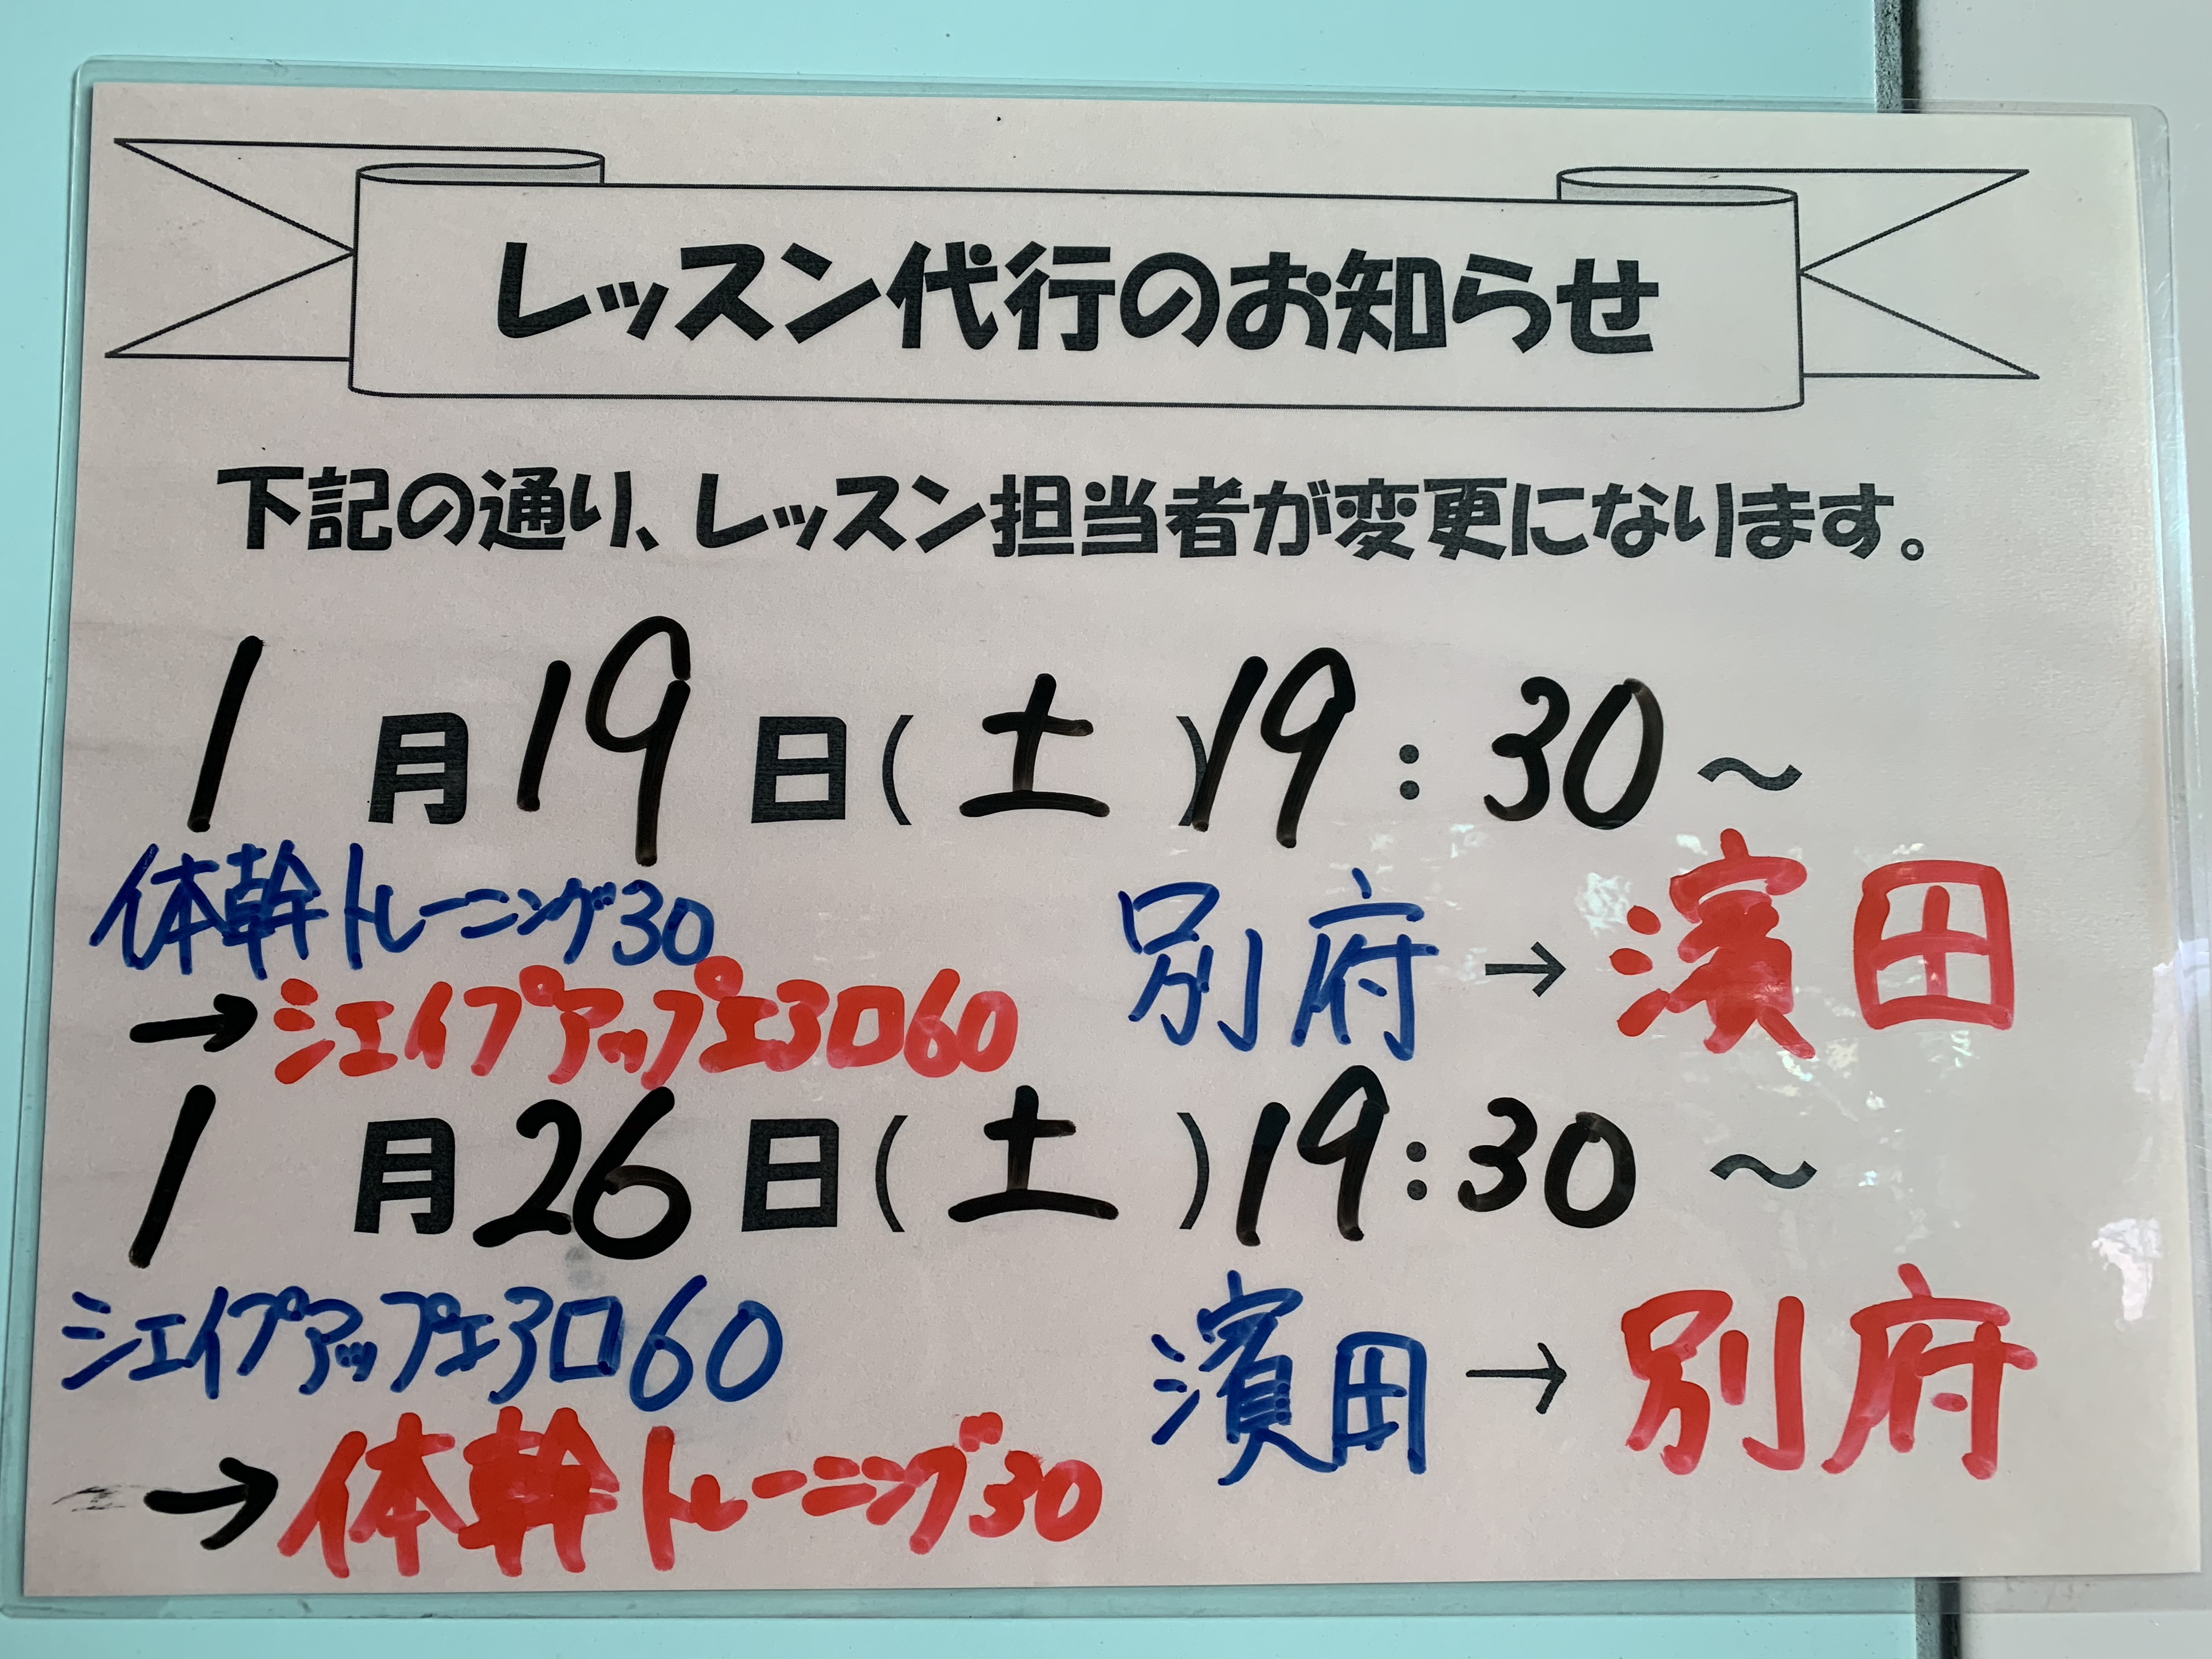 レッスン代行のお知らせ
下記の通り、レッスン担当者が変更になります。
1月19日(土)19:30～
体幹トレーニング30
→シェイプアップエアロ60
別府→濱田
1月26日(土)19:30～
シェイプアップエアロ60
→体幹トレーニング30
濱田→別府